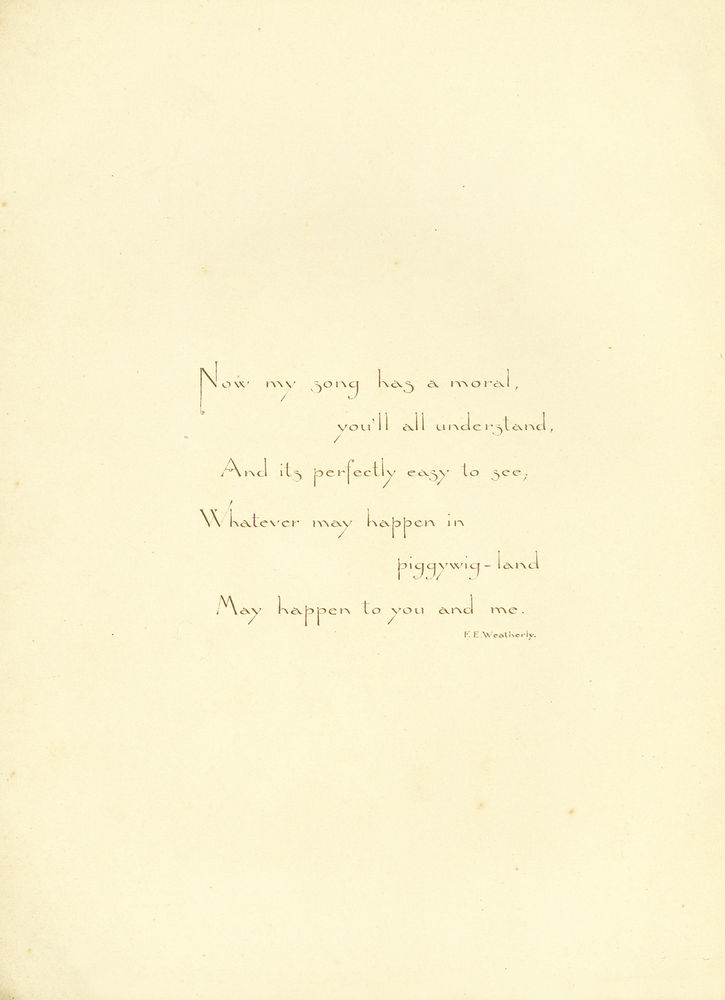 Now my song has a moral,
you'll all understand,
And its perfectly easy to see;
Whatever may happen in
piggywig-land
May happen to you and me.
F. E. Weatherly.